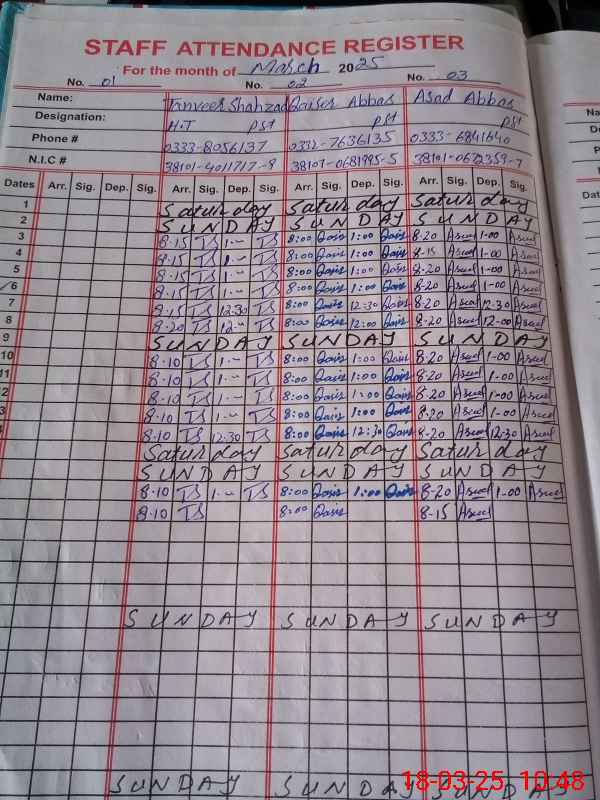 STAFF ATTENDANCE REGISTER
For the month of March 2025
No. 01 No. 02 No. 03
Name: Tanveer Shahzad Qaiser Abbas Asad Abbas
Designation: H.T PST PST PST
Phone # 0333-8056137 0332-7636135 0333-6841640
N.I.C # 38101-4011717-9 38101-0681995-5 38101-0672359-7
Dates Arr. Sig. Dep. Sig. Arr. Sig. Dep. Sig. Arr. Sig. Dep. Sig. Arr. Sig. Dep. Sig.
1 Saturday Saturday Saturday
2 SUNDAY SUNDAY SUNDAY
3 8-15 TS 1-- TS 8:00 Qais 1:00 Qais 8-20 Asad 1-00 Asad
4 8-15 TS 1-- TS 8:00 Qais 1:00 Qais 8-15 Asad 1-00 Asad
5 8-15 TS 1-- TS 8:00 Qais 1:00 Qais 8-20 Asad 1-00 Asad
6 8-15 TS 1-- TS 8:00 Qais 1:00 Qais 8-20 Asad 1-00 Asad
7 8-15 TS 12-30 TS 8:00 Qais 12:30 Qais 8-20 Asad 12-30 Asad
8 8-20 TS 12-- TS 8:00 Qais 12:00 Qais 8-20 Asad 12-00 Asad
9 SUNDAY SUNDAY SUNDAY
10 8-10 TS 1-- TS 8:00 Qais 1:00 Qais 8-20 Asad 1-00 Asad
11 8-10 TS 1-- TS 8:00 Qais 1:00 Qais 8-20 Asad 1-00 Asad
2 8-10 TS 1-- TS 8:00 Qais 1:00 Qais 8-20 Asad 1-00 Asad
3 8-10 TS 1-- TS 8:00 Qais 1:00 Qais 8-20 Asad 1-00 Asad
8-10 TS 12-30 TS 8:00 Qais 12:30 Qais 8-20 Asad 12-30 Asad
Saturday Saturday Saturday
SUNDAY SUNDAY SUNDAY
8-10 TS 1-- TS 8:00 Qais 1:00 Qais 8-20 Asad 1-00 Asad
8-10 TS 8:00 Qais 8-15 Asad
SUNDAY SUNDAY SUNDAY
SUNDAY SUNDAY SUNDAY
18-03-25 10:48